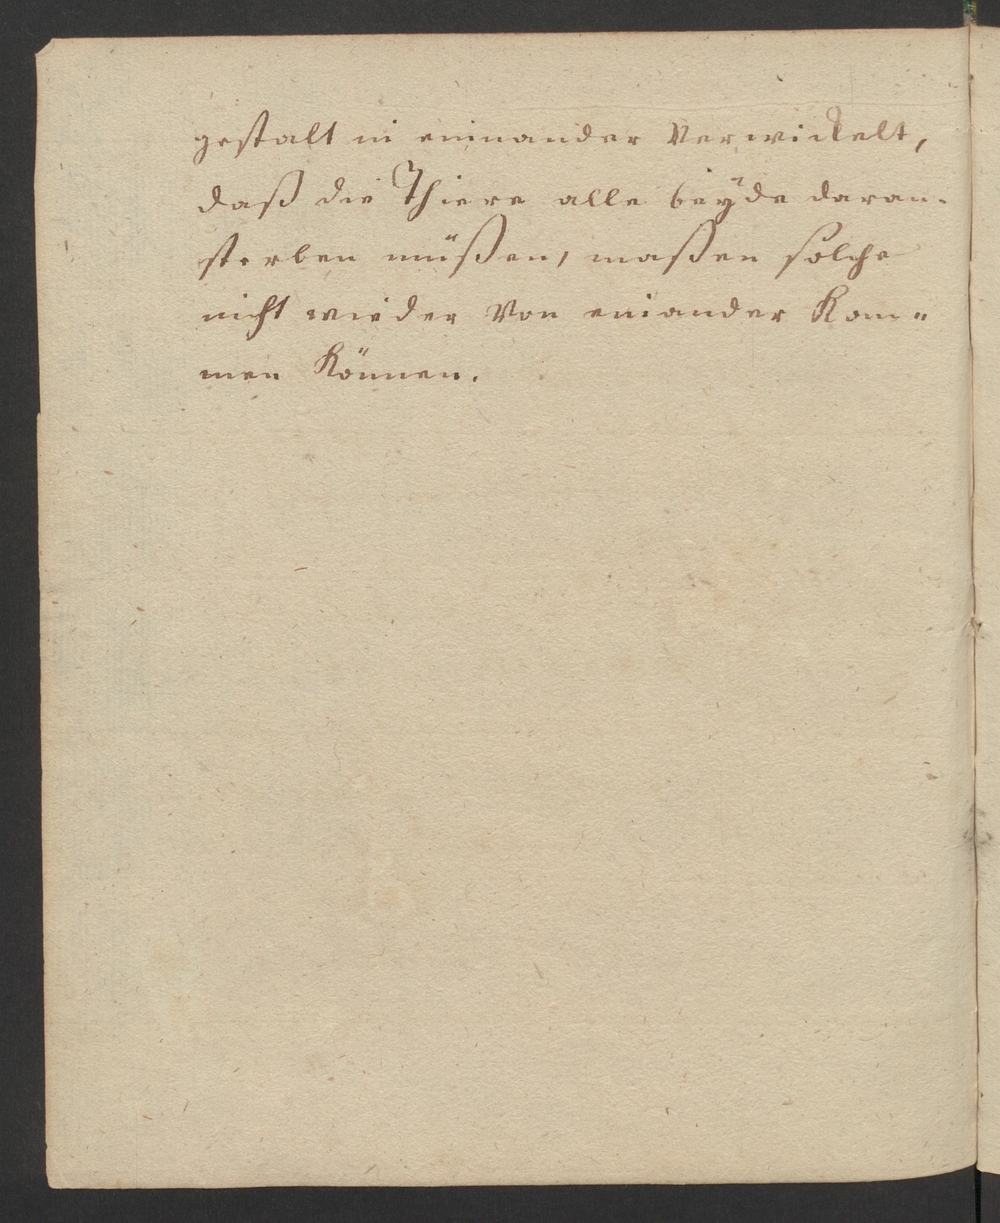 gestalt in einnander Verwickelt,
daß die Thiere alle beÿde daran
sterben müßen, maßen solche
nicht wieder Von einander Kom=
men Können.